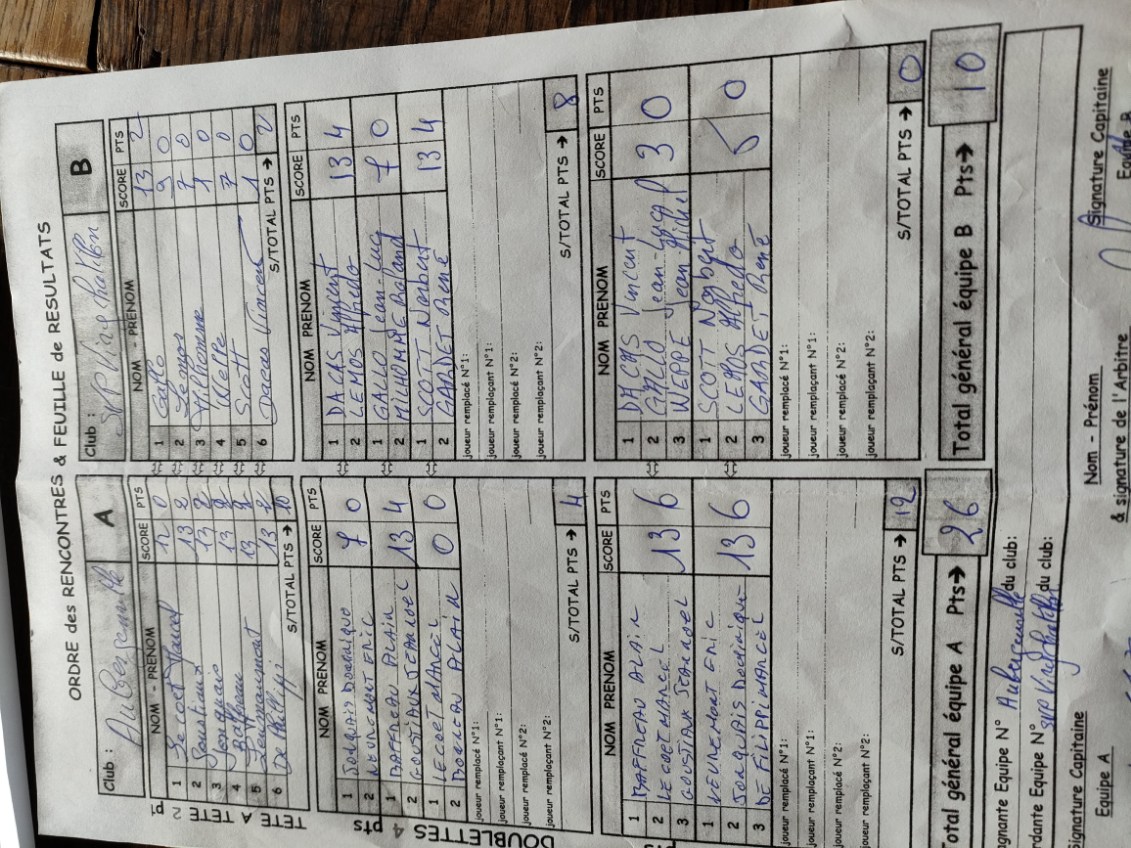 ORDRE des RENCONTRES & FEUILLE de RESULTATS
Club : A
NOM - PRENOM SCORE PTS
1 Lecoet Marcel 12 0
2 Goustiaux 13 2
3 Jonquais 13 2
4 Baffreau 13 2
5 13 2
6 De Filippi 13 2
S/TOTAL PTS → 10
TETE A TETE 2 P
Club : B
NOM - PRENOM SCORE PTS
1 Gallo 13 2
2 Lemos 9 0
3 Milhomme 7 0
4 Weppe 1 0
5 Scott 7 0
6 Dacas Vincent 1 0
S/TOTAL PTS → 2
DOUBLETTES 4 pts
NOM PRENOM SCORE PTS
1 JONQUAIS DOMINIQUE
2 ERIC
7 0
1 BAFFREAU ALAIN
2 GOUSTIAUX JEANNOEL
13 4
1 LECOET MARCEL
2 ALAIN
0 0
joueur remplacé N°1:
joueur remplaçant N°1:
joueur remplacé N°2:
joueur remplaçant N°2:
S/TOTAL PTS → 4
NOM PRENOM SCORE PTS
1 DACAS Vincent
2 LEMOS Alfredo
13 4
1 GALLO Jean-Luc
2 MILHOMME Roland
7 0
1 SCOTT Norbert
2 GARDET René
13 4
joueur remplacé N°1:
joueur remplaçant N°1:
joueur remplacé N°2:
joueur remplaçant N°2:
S/TOTAL PTS → 8
pts
NOM PRENOM SCORE PTS
1 BAFFREAU ALAIN
2 LECOET MARCEL
3 GOUSTIAUX JEANNOEL
13 6
1 ERIC
2 JONQUAIS DOMINIQUE
3 DE FILIPPI MARCEL
13 6
joueur remplacé N°1:
joueur remplaçant N°1:
joueur remplacé N°2:
joueur remplaçant N°2:
S/TOTAL PTS → 12
NOM PRENOM SCORE PTS
1 DACAS Vincent
2 GALLO Jean-Luc
3 WEPPE Jean-Michel
3 0
1 SCOTT Norbert
2 LEMOS Alfredo
3 GARDET René
5 0
joueur remplacé N°1:
joueur remplaçant N°1:
joueur remplacé N°2:
joueur remplaçant N°2:
S/TOTAL PTS → 0
Total général équipe A Pts→ 26
Total général équipe B Pts→ 10
gnante Equipe N° du club:
rdante Equipe N° du club:
Signature Capitaine
Equipe A
Nom - Prénom
& signature de l'Arbitre
Signature Capitaine
Equipe B